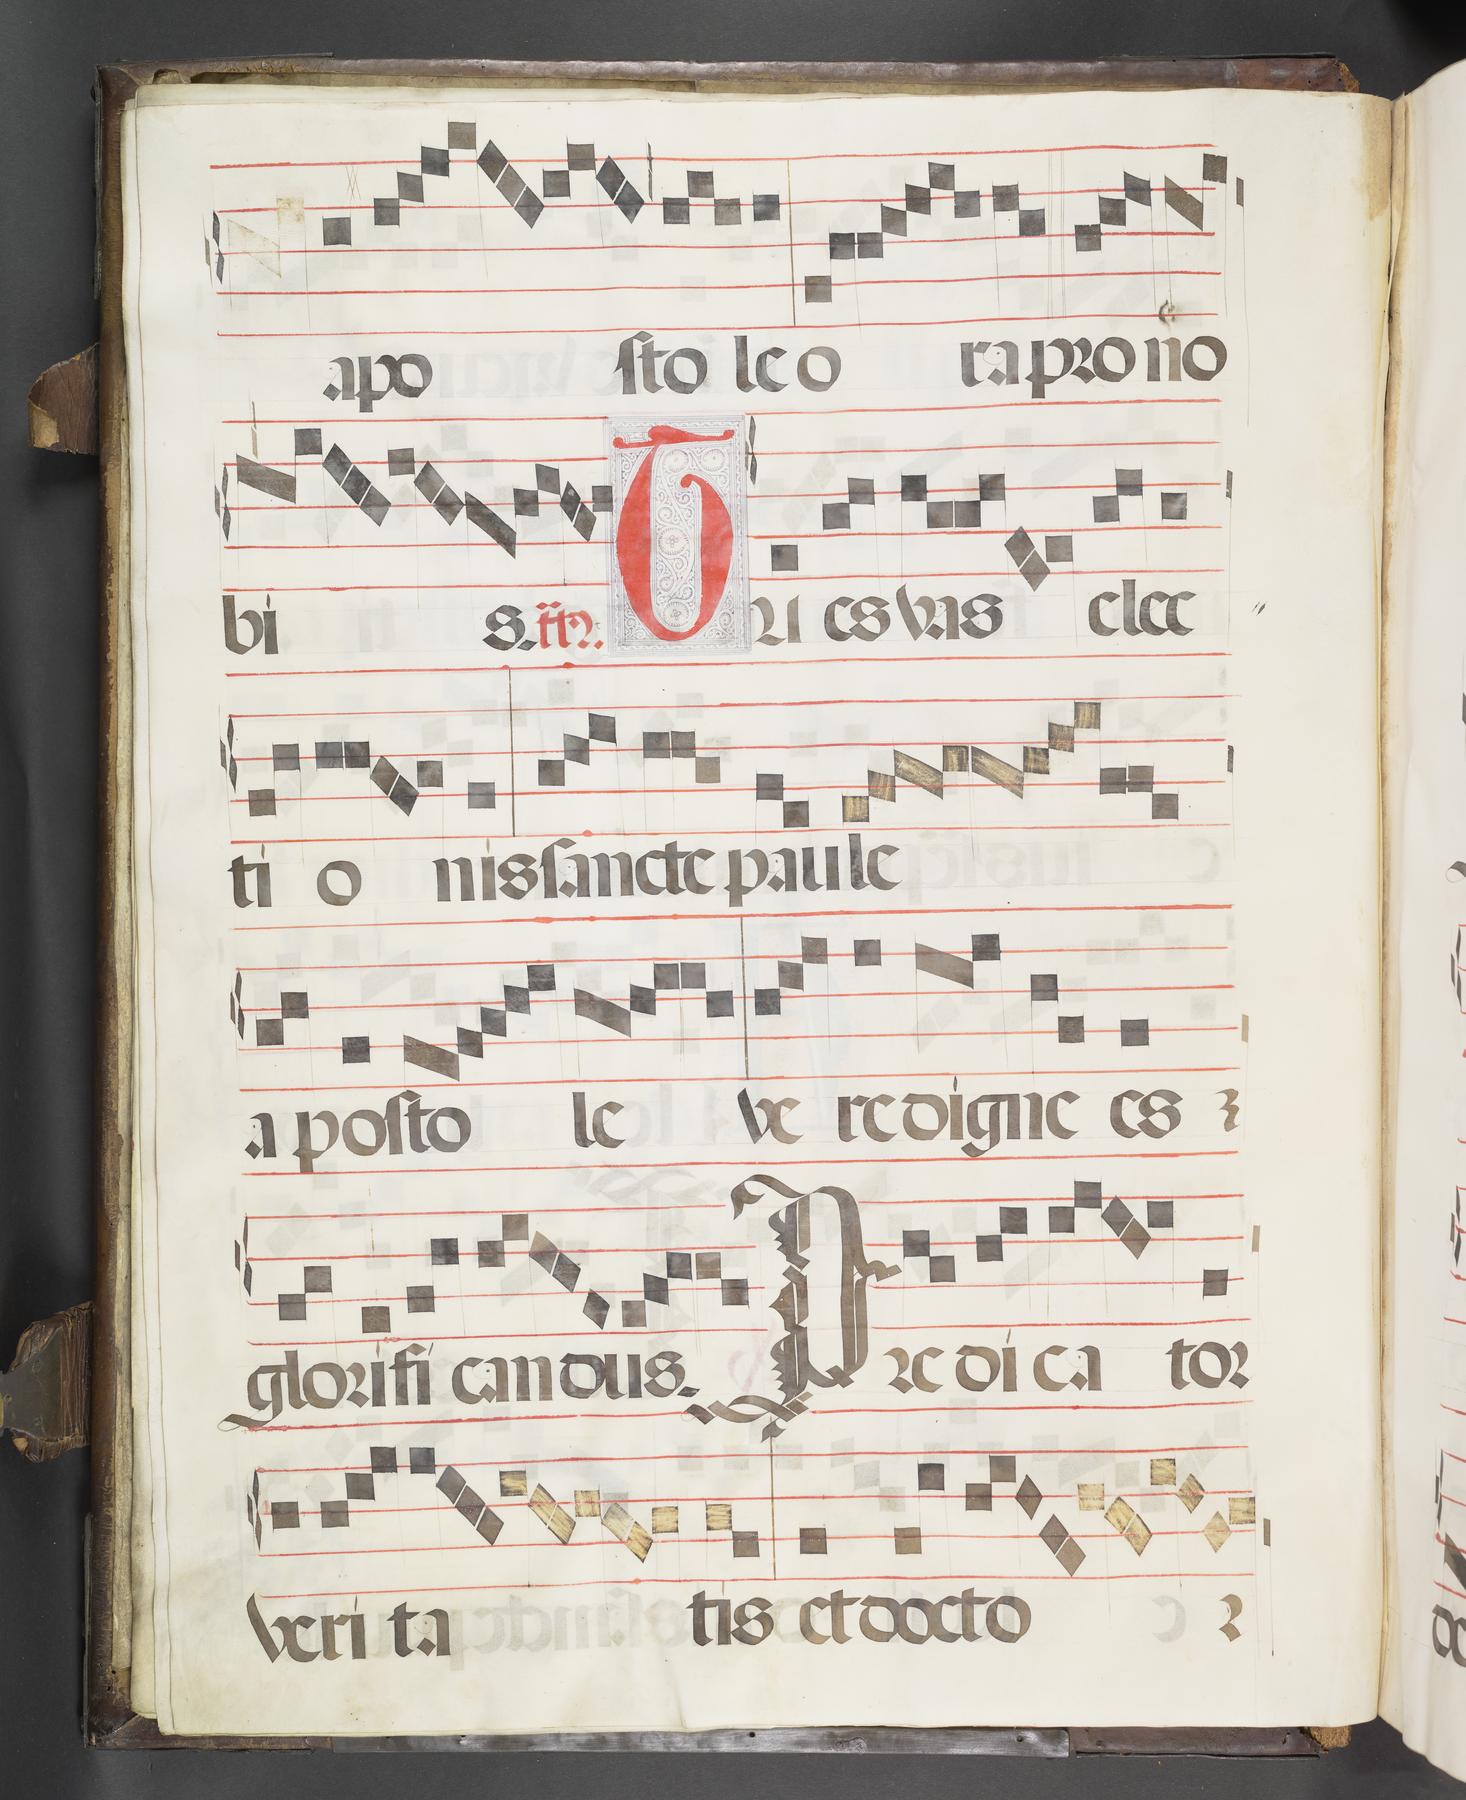 apo sto le o ra pro no
bi s. Tu es vas elec
ti o nis sancte paule
a posto le ve re digne es
glorifi candus. Pre di ca tor
veri ta tis et docto